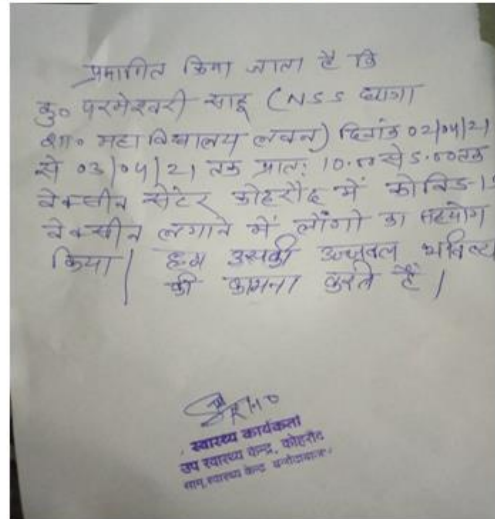 प्रमाणित किया जाता है कि
कु० परमेश्वरी साहू (NSS छात्रा
शा० महाविद्यालय लवन) दिनांक 02/04/21
से 03/04/21 तक प्रातः 10.00 से 5.00 तक
वेक्सीन सेंटर कोहरौद में कोविड-1
वेक्सीन लगाने में लोंगो का सहयोग
किया| हम उसकी उज्जवल भविष्य
की कामना करते हैं|
स्वास्थ्य कार्यकर्ता
उप स्वास्थ्य केन्द्र, कोहरौद
सामु.स्वास्थ्य केन्द्र